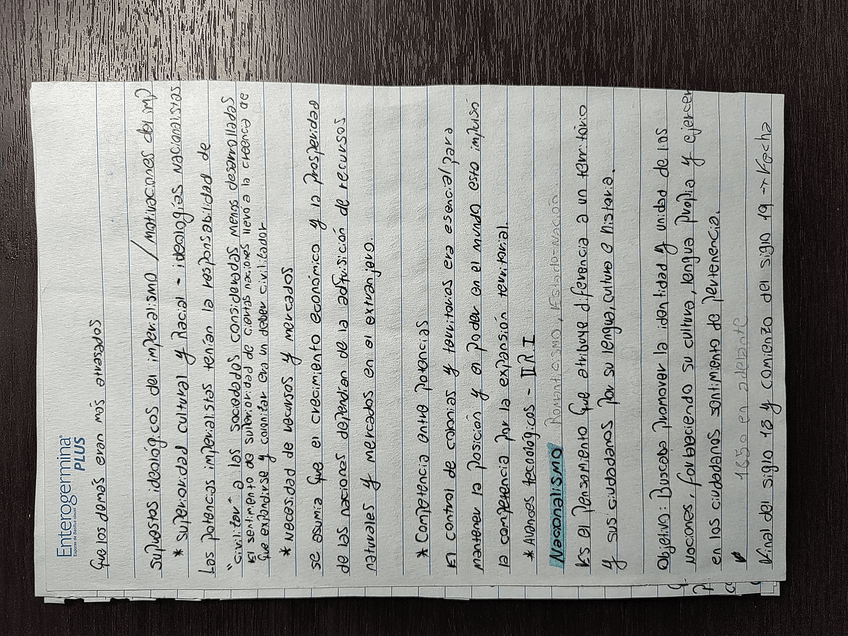 Enterogermina
PLUS
que los demás eran más atrasados
supuestos ideológicos del imperialismo / motivaciones del imp
* Superioridad cultural y racial - ideologías nacionalistas
Las potencias imperialistas tenían la responsabilidad de
"civilizar" a las sociedades consideradas menos desarrolladas
El sentimiento de superioridad de ciertas naciones llevó a la creencia de
que expandirse y colonizar era un deber civilizador
* Necesidad de recursos y mercados
se asumía que el crecimiento económico y la prosperidad
de las naciones dependían de la adquisición de recursos
naturales y mercados en el extranjero.
* Competencia entre potencias
El control de colonias y territorios era esencial para
mantener la posición y el poder en el mundo esto impulso
la competencia por la expansión territorial.
* Avances tecnológicos - II R I
Nacionalismo Romanticismo, Estado-nación
Es el pensamiento que atribuye diferencia a un territorio
y sus ciudadanos por su lengua, cultura e historia.
Objetivo: Buscaba promover la identidad y unidad de las
naciones, fortaleciendo su cultura, lengua propia y ejercer
en los ciudadanos sentimiento de pertenencia.
1850 en adelante
Final del siglo 18 y comienzo del siglo 19 → Fecha